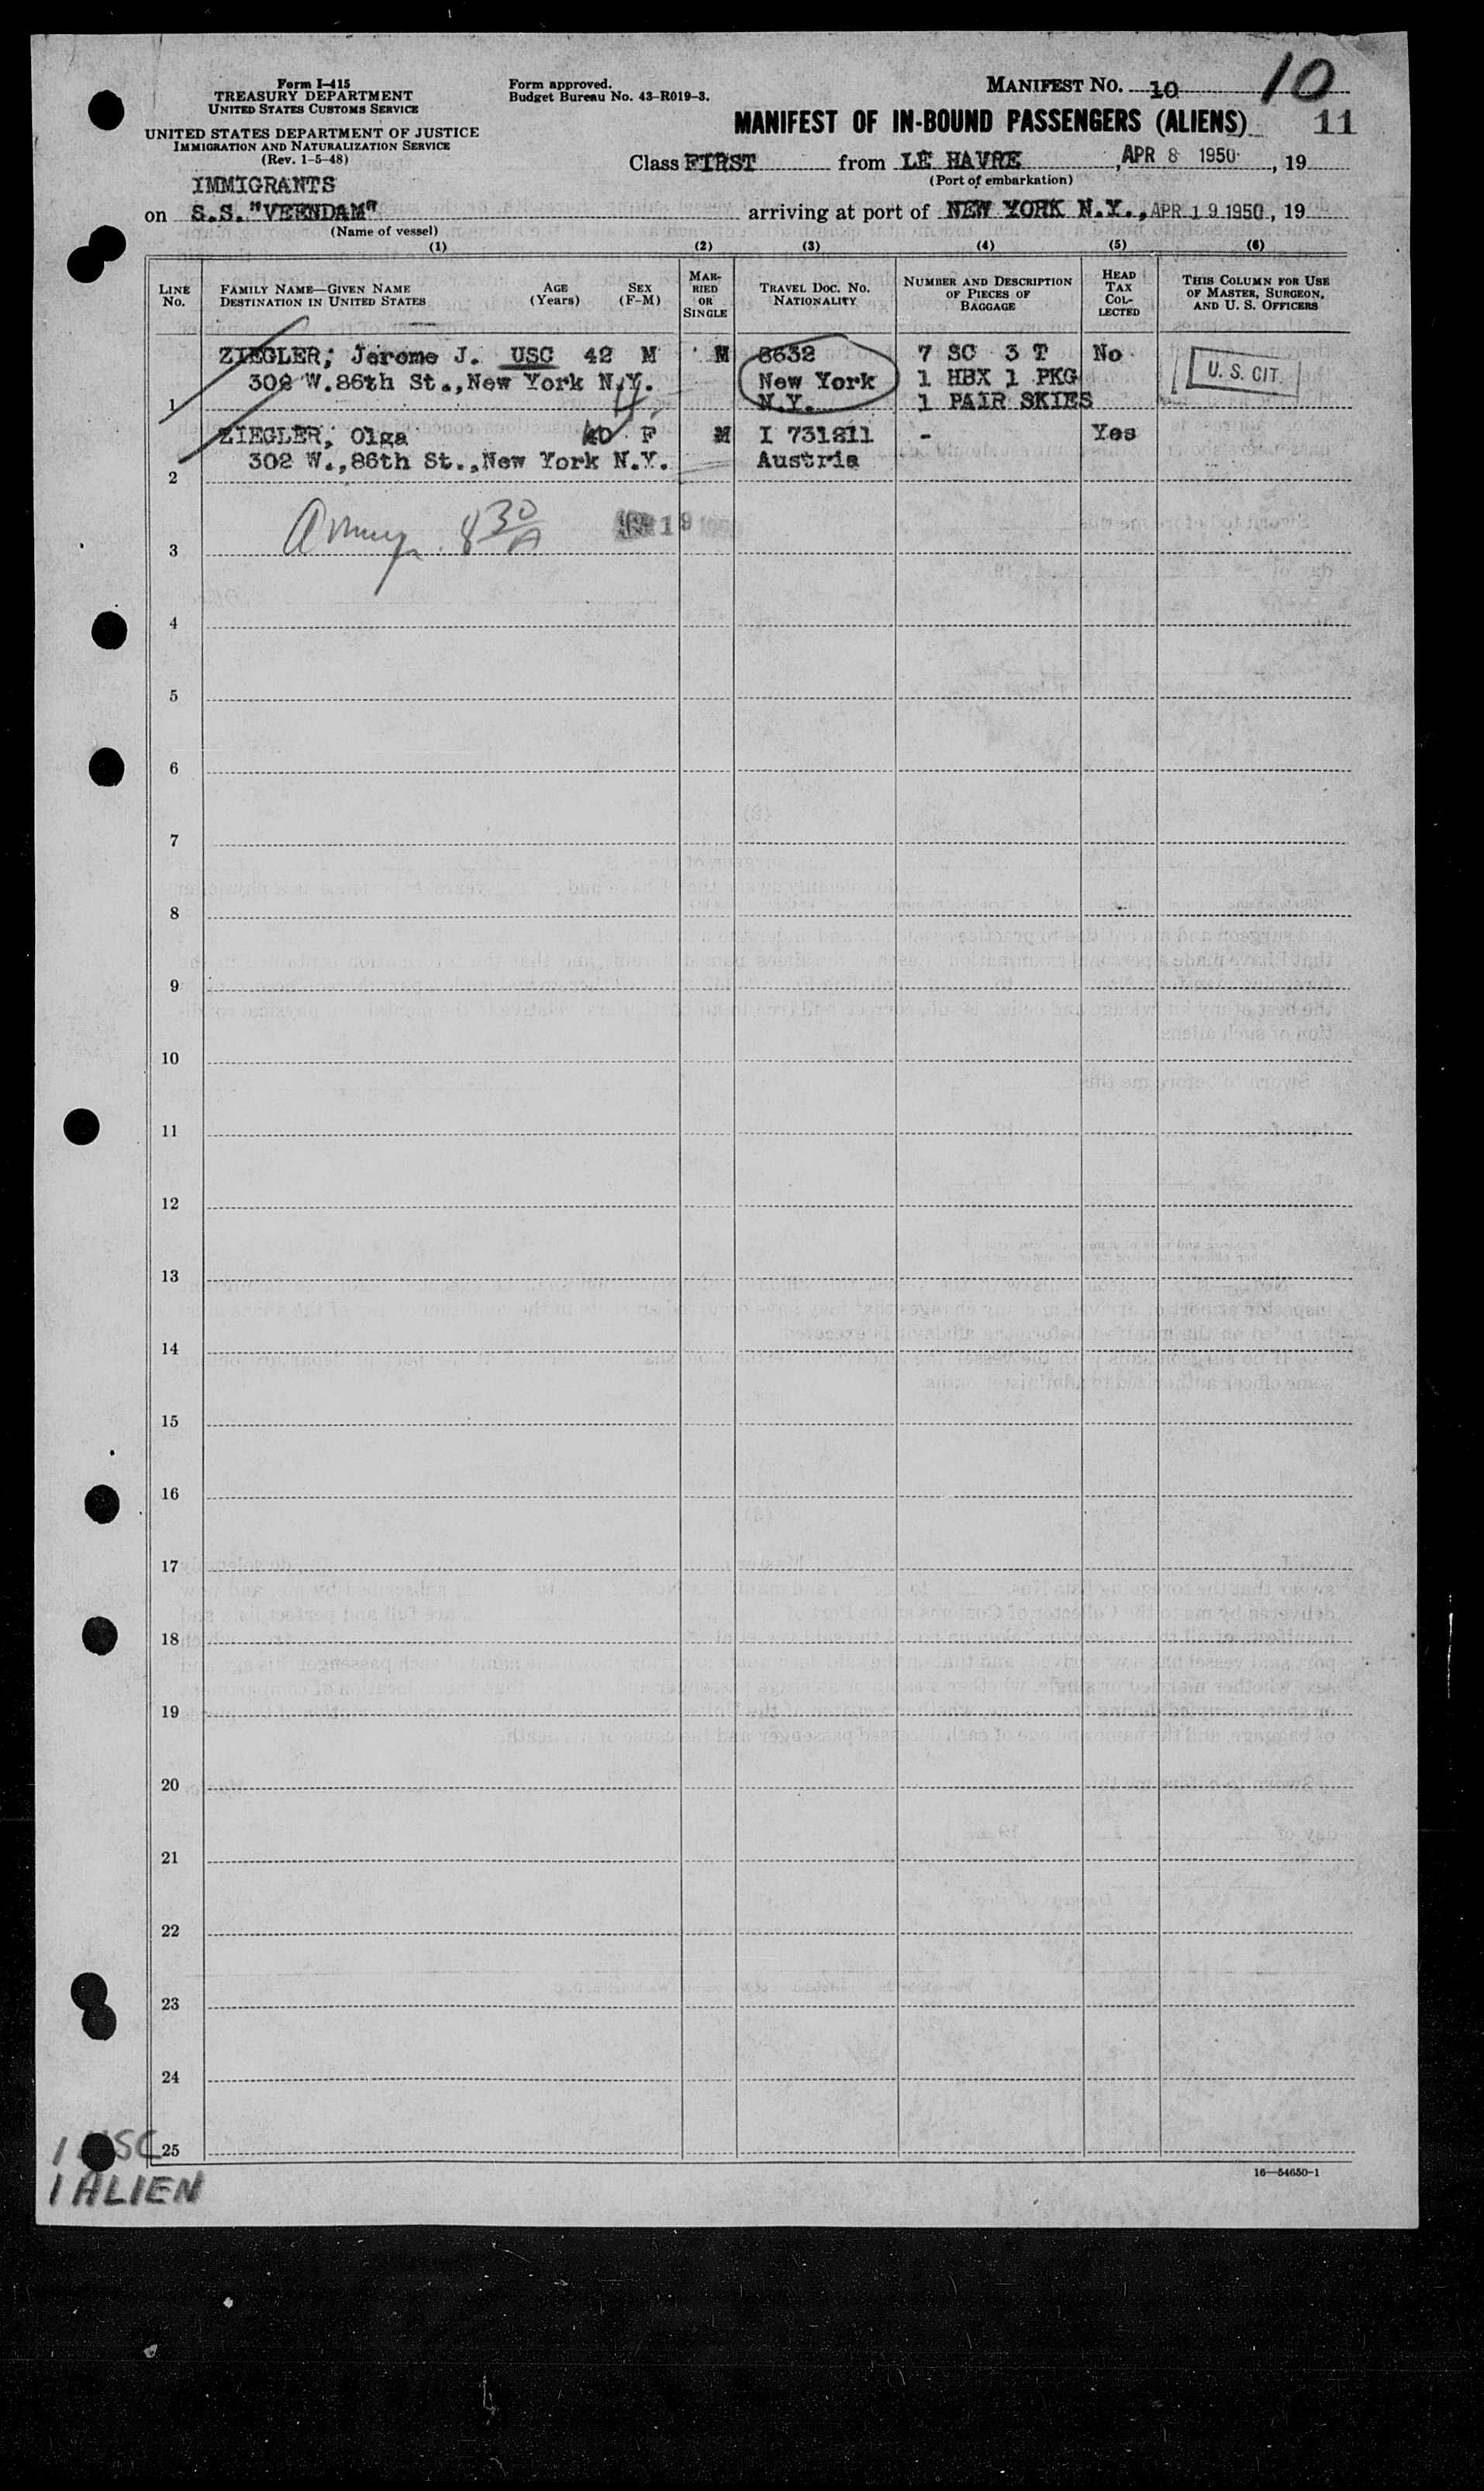 Form I-415
TREASURY DEPARTMENT
UNITED STATES CUSTOMS SERVICE
UNITED STATES DEPARTMENT OF JUSTICE
IMMIGRATION AND NATURALIZATION SERVICE
(Rev. 1-5-48)
Form approved.
Budget Bureau No. 43-R019-3.
MANIFEST NO. 10 10
MANIFEST OF IN-BOUND PASSENGERS (ALIENS) 11
Class FIRST from LE HAVRE, APR 8 1950, 19
(Port of embarkation)
IMMIGRANTS
on S.S."VEENDAM" arriving at port of NEW YORK N.Y., APR 19 1950, 19
(Name of vessel)
(1) (2) (3) (4) (5) (6)
LINE No.
FAMILY NAME—GIVEN NAME
DESTINATION IN UNITED STATES
AGE (Years)
SEX (F-M)
MARRIED OR SINGLE
TRAVEL DOC. NO.
NATIONALITY
NUMBER AND DESCRIPTION OF PIECES OF BAGGAGE
HEAD TAX COLLECTED
THIS COLUMN FOR USE OF MASTER, SURGEON, AND U. S. OFFICERS
ZIEGLER, Jerome J. USC 42 M M 8632 7 SC 3 T No U. S. CIT.
302 W.86th St.,New York N.Y. New York 1 HBX 1 PKG
1 N.Y. 1 PAIR SKIES
ZIEGLER, Olga 40 F M I 731211 - Yes
302 W.,86th St.,New York N.Y. Austria
2
8 30 A
3
4
5
6
7
8
9
10
11
12
13
14
15
16
17
18
19
20
21
22
23
24
25
1 USC
1 ALIEN
16—54650-1